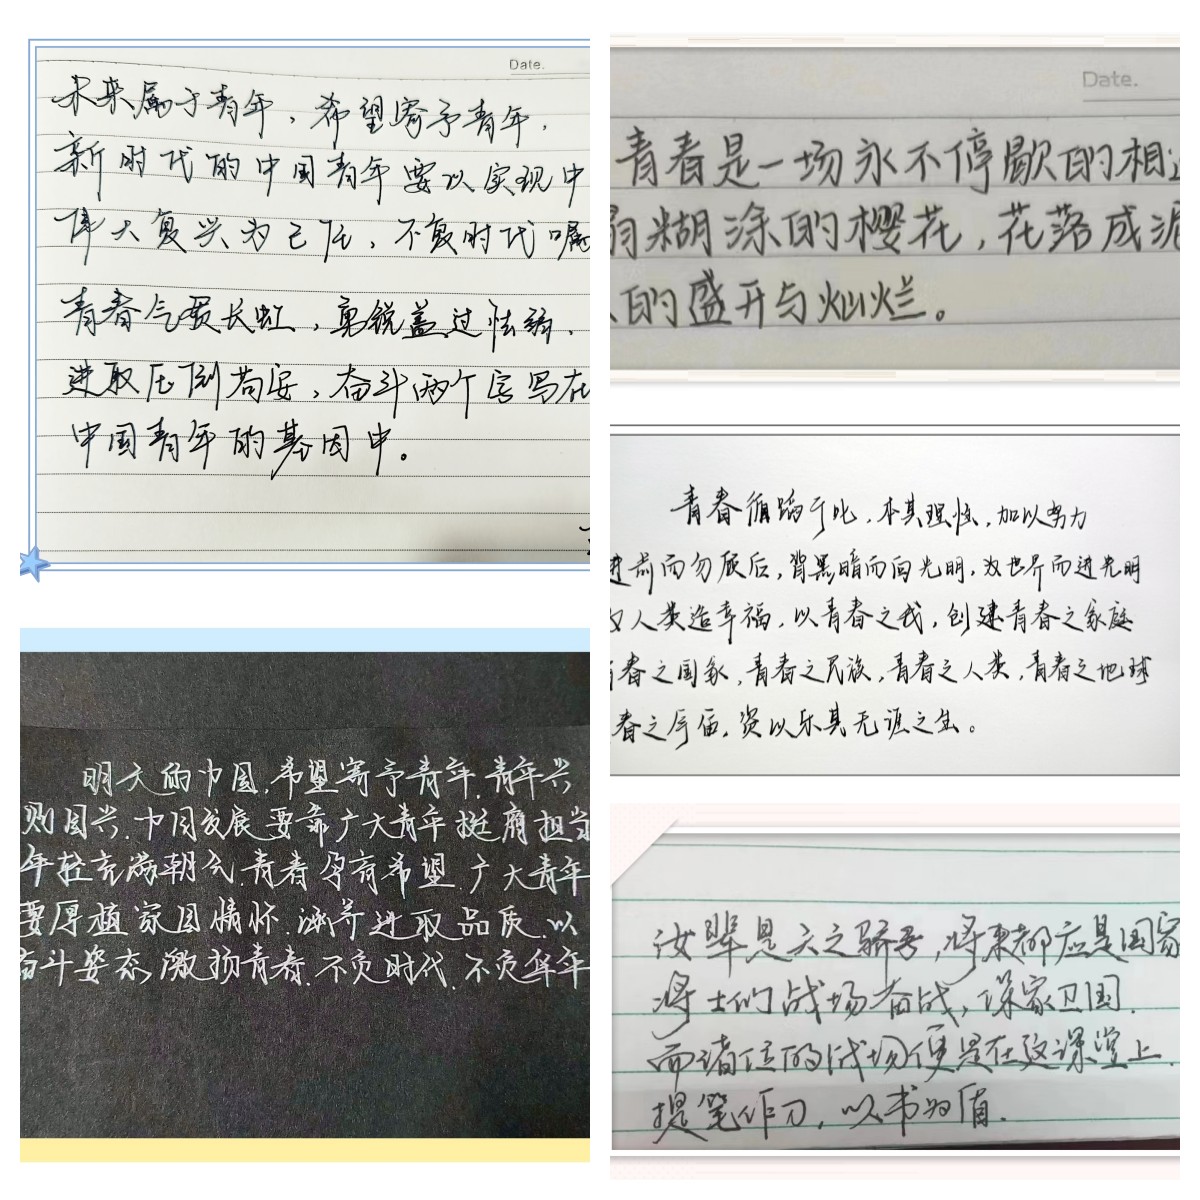 Date.
未来属于青年，希望寄予青年，
新时代的中国青年要以实现中
伟大复兴为己任，不负时代嘱
青春气贯长虹，勇锐盖过怯弱，
进取压倒苟安，奋斗两个字写在
中国青年的基因中。
明天的中国，希望寄予青年，青年兴
则国兴，中国发展要靠广大青年挺膺担当
年轻充满朝气，青春孕育希望，广大青年
要厚植家国情怀，涵养进取品质，以
奋斗姿态，激扬青春，不负时代，不负华年
Date.
青春是一场永不停歇的相
糊涂的樱花，花落成泥
的盛开与灿烂。
青春循蹈于此，本其理性，加以努力
进前而勿顾后，背黑暗而向光明，为世界而进光明
人类造幸福，以青春之我，创建青春之家庭
青春之国家，青春之民族，青春之人类，青春之地球
春之宇宙，资以乐其无涯之生。
汝辈是天之骄子，将来都应是国家
将士们战场奋战，保家卫国，
而诸位的战场便是在这课堂上，
提笔作刀，以书为盾.